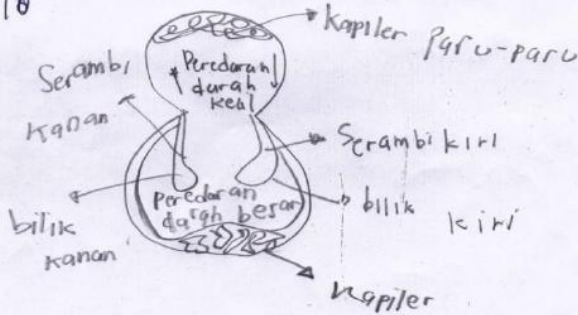 18
Kapiler Paru-paru
Serambi
kanan
Peredaran
darah
kecil
Serambi kiri
bilik
kanan
Peredaran
darah besar
bilik
kiri
Kapiler